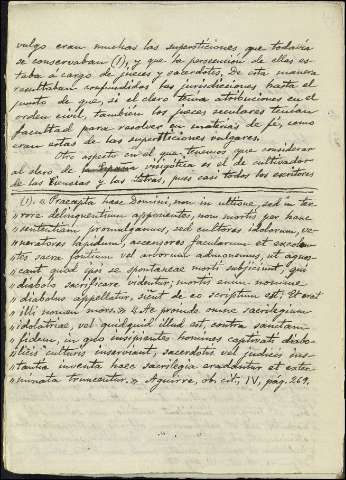 vulgo eran muchas las supersticiones que todavía
se conservaban (1), y que la persecución de ellas es-
taba a cargo de jueces y sacerdotes. De esta manera
resultaban confundidas las jurisdicciones hasta el
punto de que, si el clero tenía atribuciones en el
orden civil, también los jueces seculares tenían
facultad para resolver en materias de fé, como
eran estas de las supersticiones vulgares.
Otro aspecto en el que tenemos que considerar
al clero de visigótica es el de cultivador
de las Ciencias y las Letras, pues casi todos los escritores
(1). « Praecepta haec Domini, non in ultione, sed in te-
" rrore delinquentium apponentes, non mortis per hanc
" sententiam promulgamus, sed cultores idolorum, ve-
" neratores lapidum, accensores facularum et excolen-
" tes sacra fontium vel arborum admonemus, ut agnos-
" cant quod ipsi se spontaneae morti subjiciunt, qui
" diabolo sacrificare videntur; mortis enim nomine
" diabolus appellatur, sicut de eo scriptum est: Et erat
" illi nomen mors. » « Ac proinde omne sacrilegium
" idolatriae, vel quidquid illud est, contra sanctam
" fidem, in quo insipientes homines captivati diabo-
" licis culturis inserviunt, sacerdotis vel judicis ins-
" tantia inventa haec sacrilegia eradantur et exter-
" minata truncentur. » Aguirre, ob. cit., IV, pág. 269.